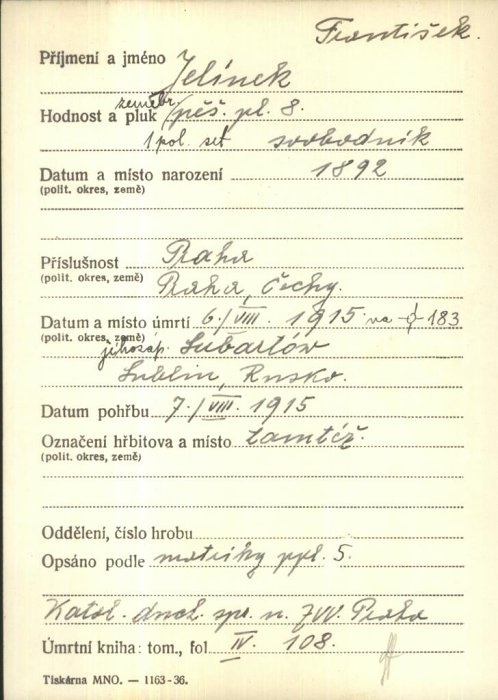 František.
Příjmení a jméno Jelínek
zeměbr.
Hodnost a pluk pěš. pl. 8.
1 pol. set svobodník
Datum a místo narození 1892
(polit. okres, země)
Příslušnost Praha
(polit. okres, země) Praha, Čechy.
Datum a místo úmrtí 6./VIII. 1915 na 183
(polit. okres, země) jihozáp. Lubartów
Lublin, Rusko.
Datum pohřbu 7./VIII. 1915
Označení hřbitova a místo tamtéž.
(polit. okres, země)
Oddělení, číslo hrobu
Opsáno podle matriky ppl. 5.
Katol. duch. spr. n. ZVV. Praha
Úmrtní kniha: tom., fol. IV. 108.
Tiskárna MNO. — 1163-36.